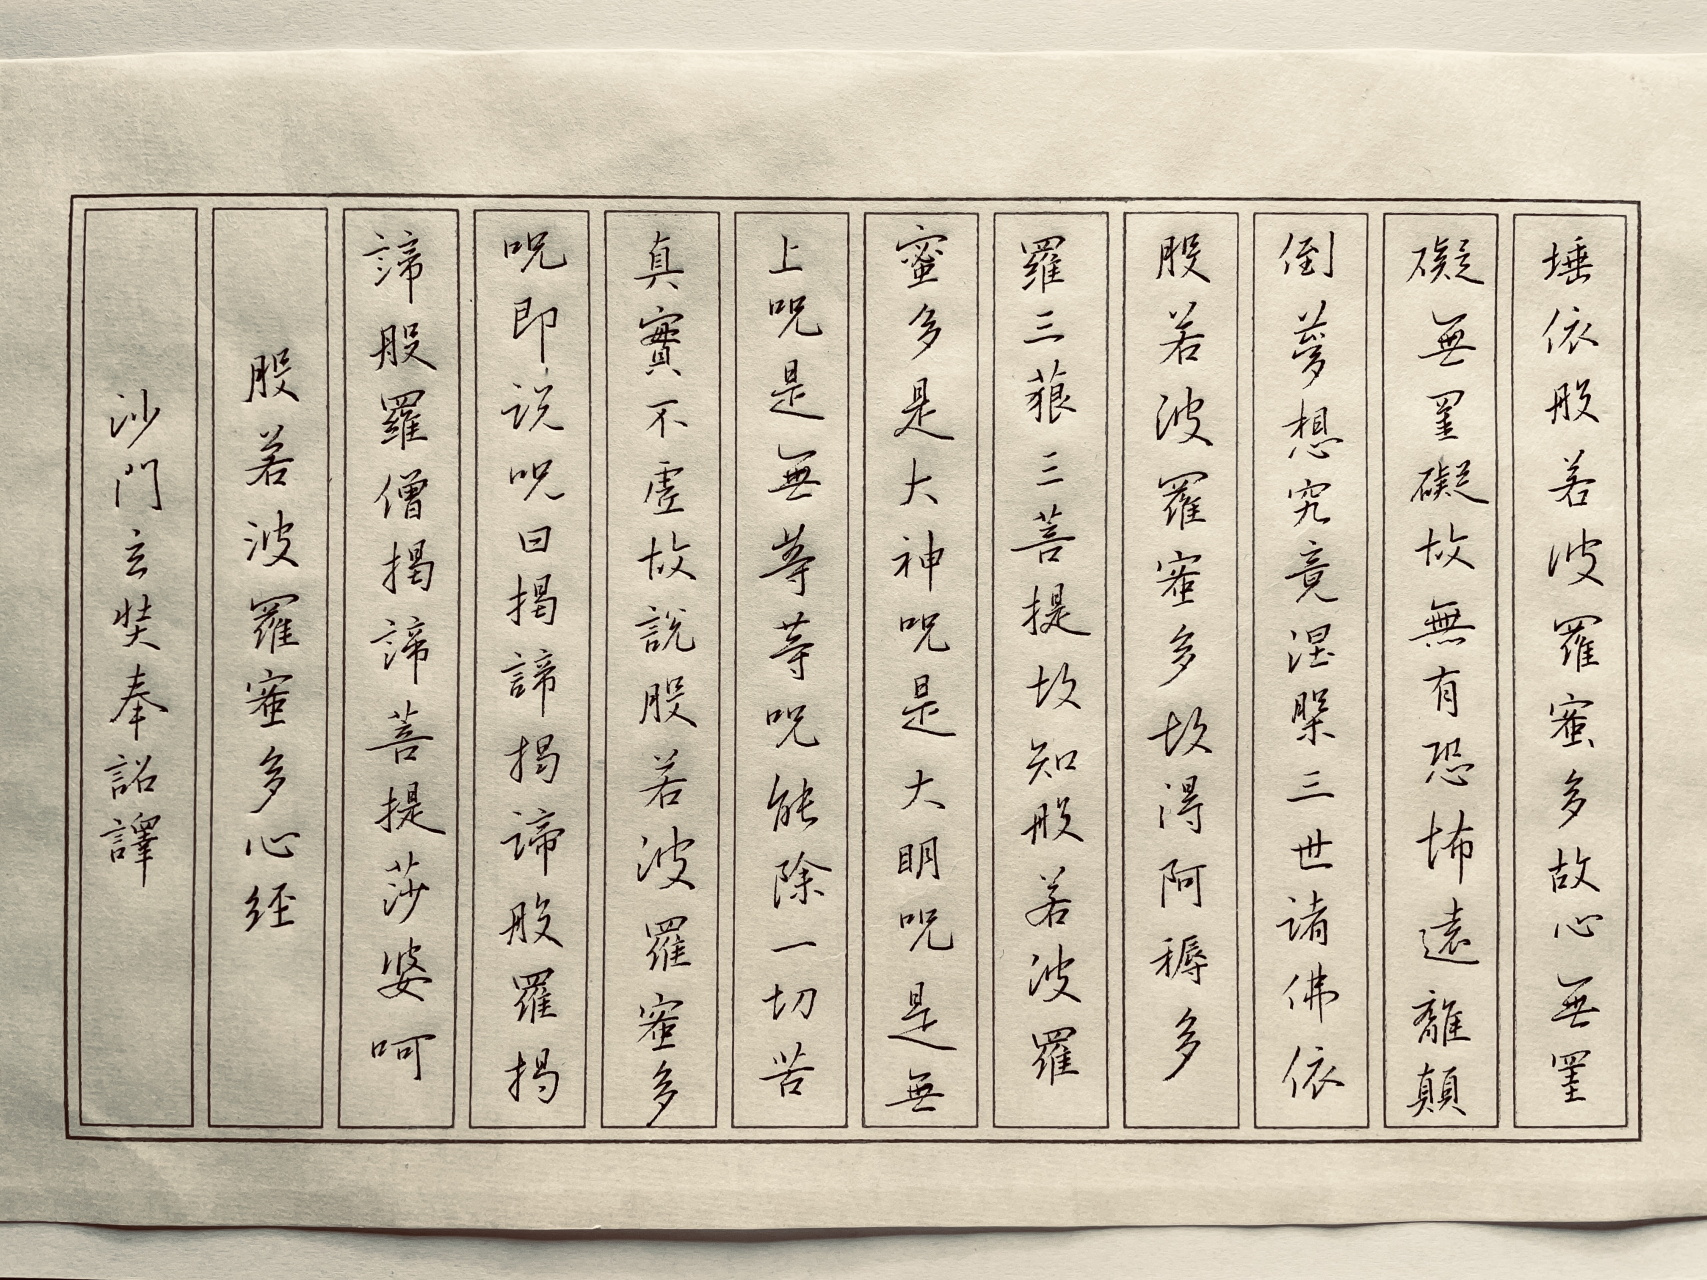 埵依般若波羅蜜多故心無罣
礙無罣礙故無有恐怖遠離顛
倒夢想究竟涅槃三世諸佛依
般若波羅蜜多故得阿耨多
羅三藐三菩提故知般若波羅
蜜多是大神呪是大明呪是無
上呪是無等等呪能除一切苦
真實不虛故說般若波羅蜜多
呪即說呪曰揭諦揭諦般羅揭
諦般羅僧揭諦菩提莎婆呵
般若波羅蜜多心経
沙門玄奘奉詔譯